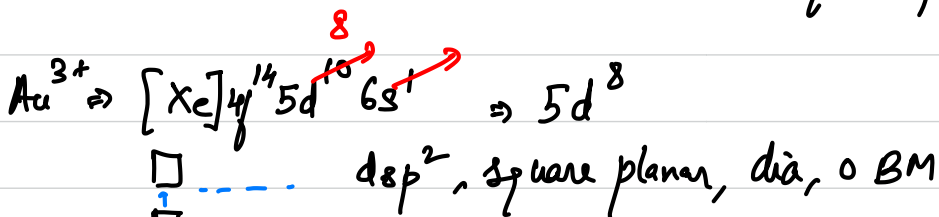 8
Au³⁺ ⇒ [Xe]4f¹⁴5d¹⁰6s¹ ⇒ 5d⁸
dsp², square planar, dia, 0 BM